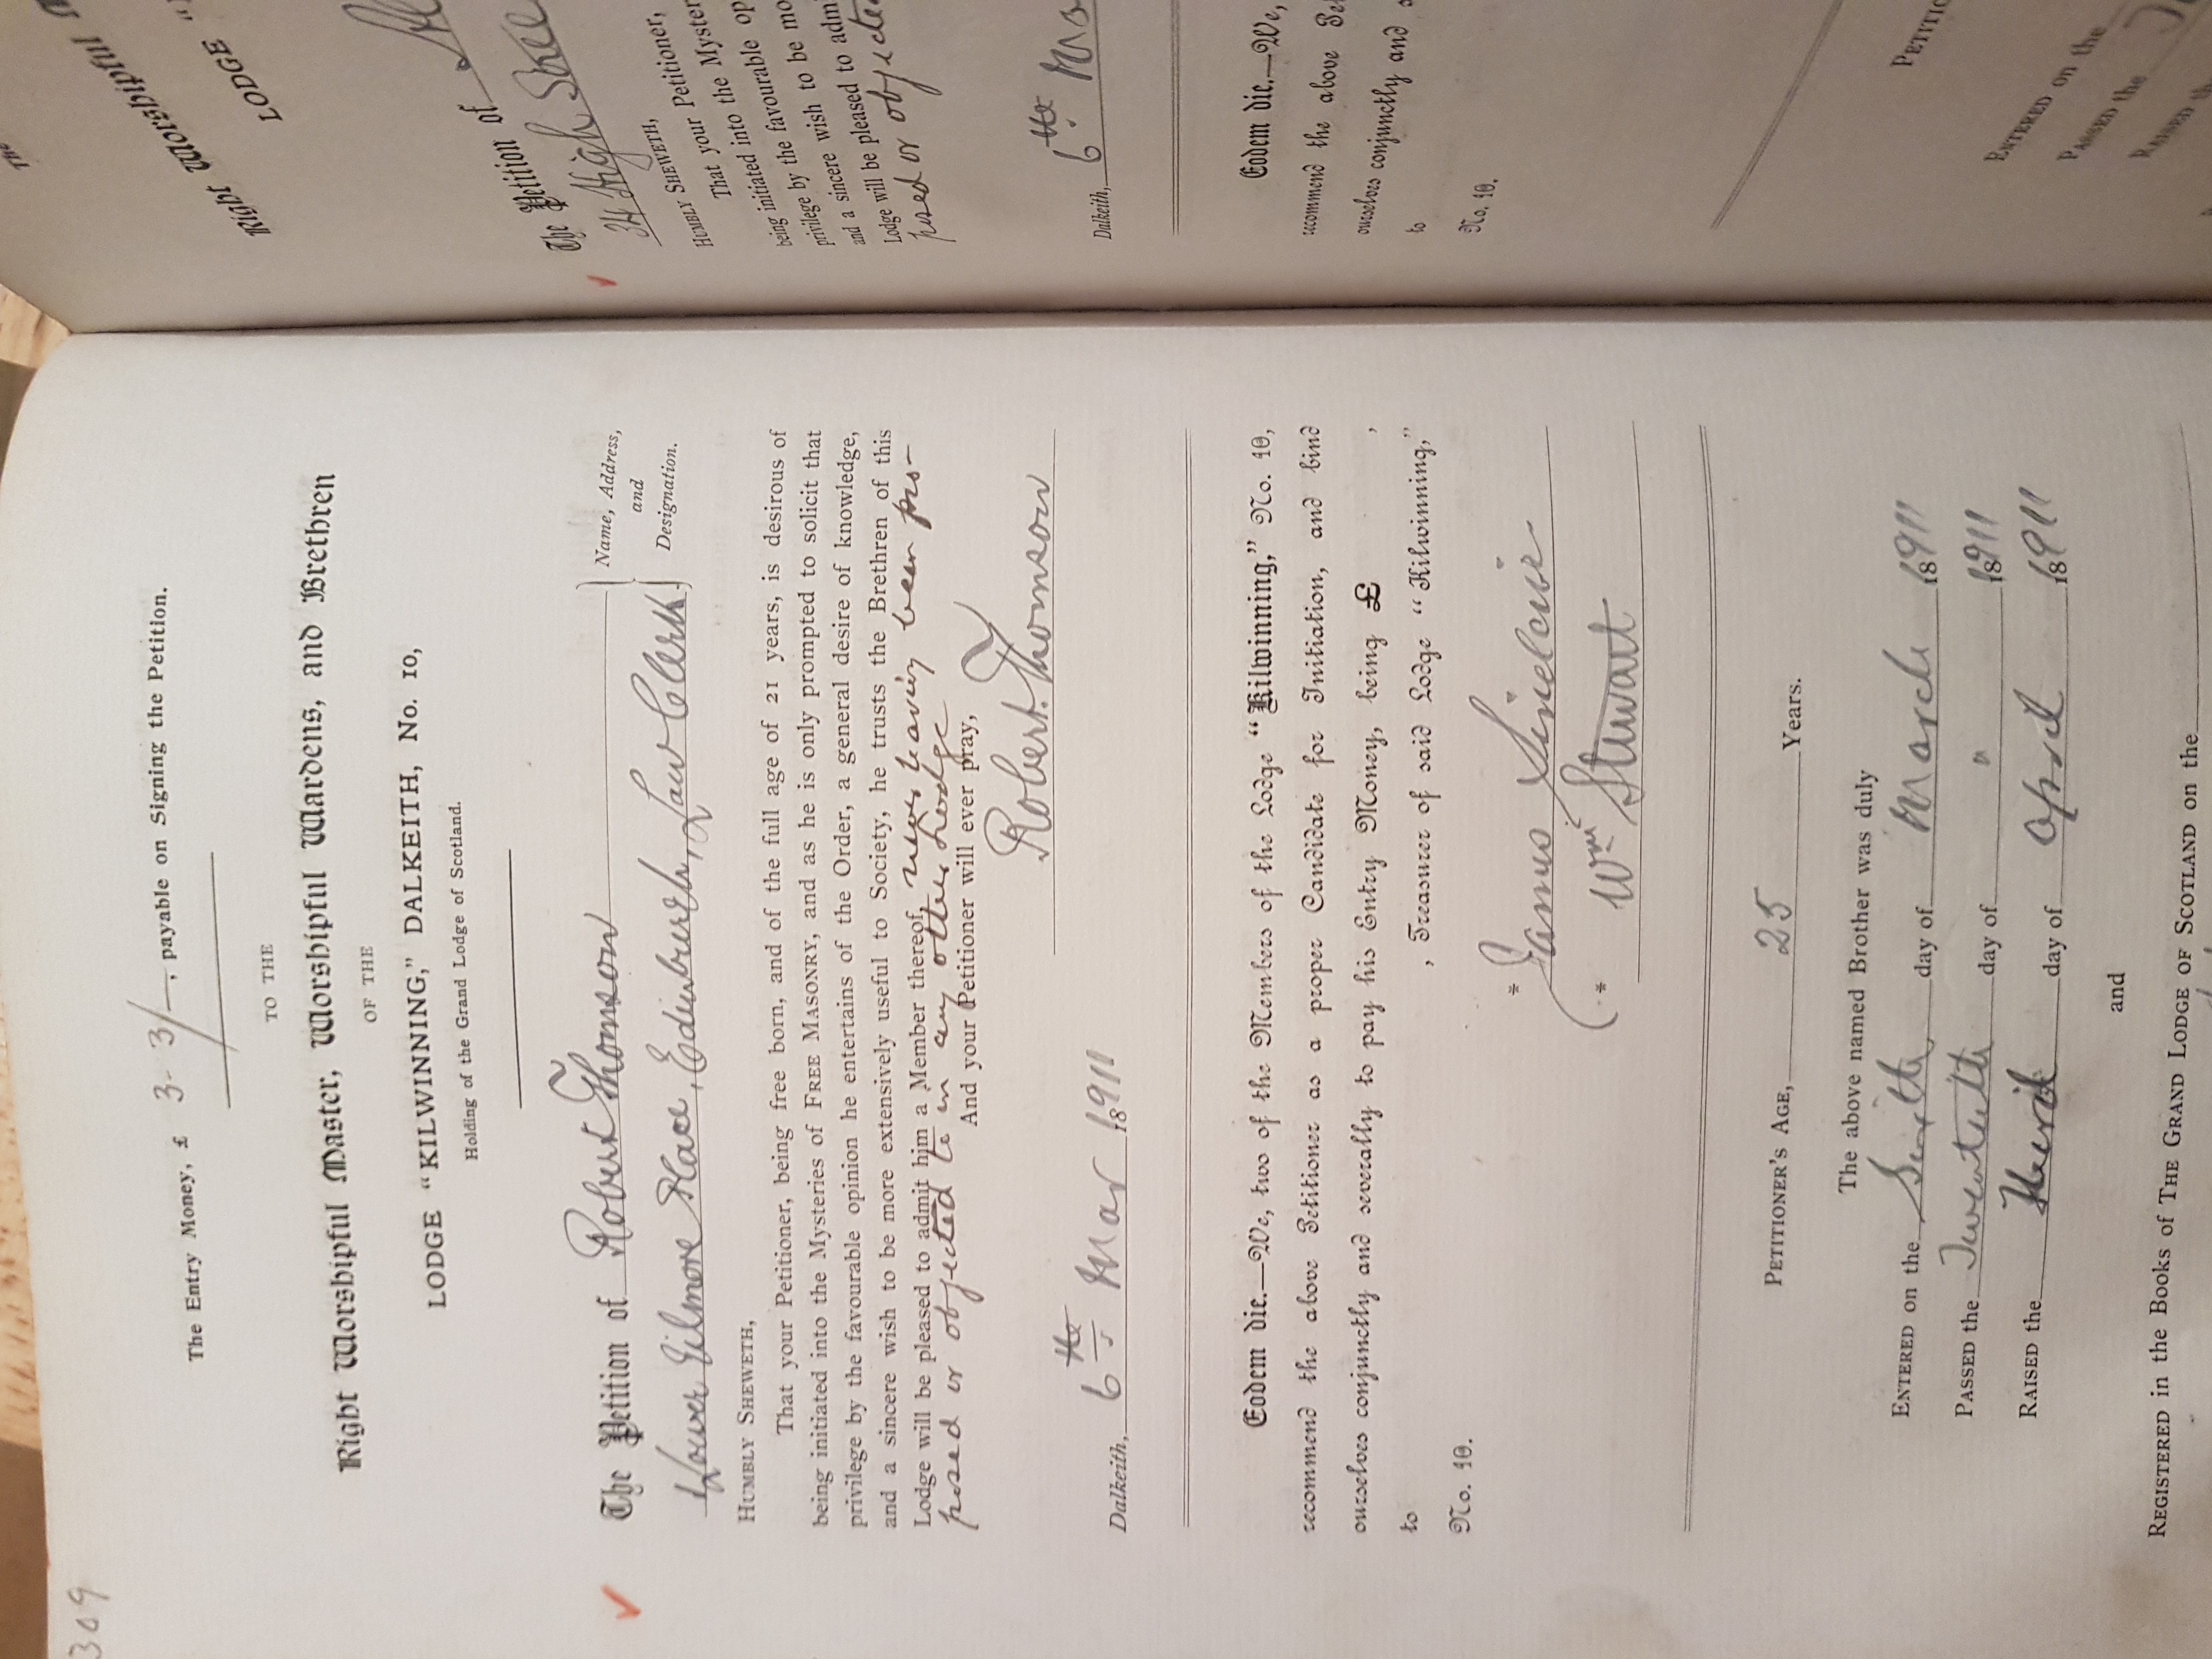 309
The Entry Money, £ 3-3/-, payable on Signing the Petition.
TO THE
Right Worshipful Master, Worshipful Wardens, and Brethren
OF THE
LODGE "KILWINNING," DALKEITH, No. 10,
Holding of the Grand Lodge of Scotland.
The Petition of Robert Thomson
Lower Gilmore Place, Edinburgh, Law Clerk.
Name, Address,
and
Designation.
HUMBLY SHEWETH,
That your Petitioner, being free born, and of the full age of 21 years, is desirous of
being initiated into the Mysteries of FREE MASONRY, and as he is only prompted to solicit that
privilege by the favourable opinion he entertains of the Order, a general desire of knowledge,
and a sincere wish to be more extensively useful to Society, he trusts the Brethren of this
Lodge will be pleased to admit him a Member thereof, never having been pro-
posed or objected to in any other Lodge
And your Petitioner will ever pray,
Robert Thomson
Dalkeith, 6th Mar 1911
Eodem die.—We, two of the Members of the Lodge "Kilwinning," No. 10,
recommend the above Petitioner as a proper Candidate for Initiation, and bind
ourselves conjunctly and severally to pay his Entry Money, being £ ,
to , Treasurer of said Lodge "Kilwinning,"
No. 10.
* James Sinclair
* Wm Stewart
PETITIONER'S AGE, 25 Years.
The above named Brother was duly
ENTERED on the Sixth day of March 1911
PASSED the Twentieth day of " 1911
RAISED the Third day of April 1911
and
REGISTERED in the Books of THE GRAND LODGE OF SCOTLAND on the
The
Right Worshipful
LODGE "
The Petition of
34 High Stre
HUMBLY SHEWETH,
That your Petitioner,
being initiated into the Myster
privilege by the favourable op
and a sincere wish to be mo
Lodge will be pleased to admi
posed or objected
Dalkeith, 6th Mar
Eodem die.—We,
recommend the above Pet
ourselves conjunctly and s
to
No. 10.
PETITIO
ENTERED on the
PASSED the
RAISED th